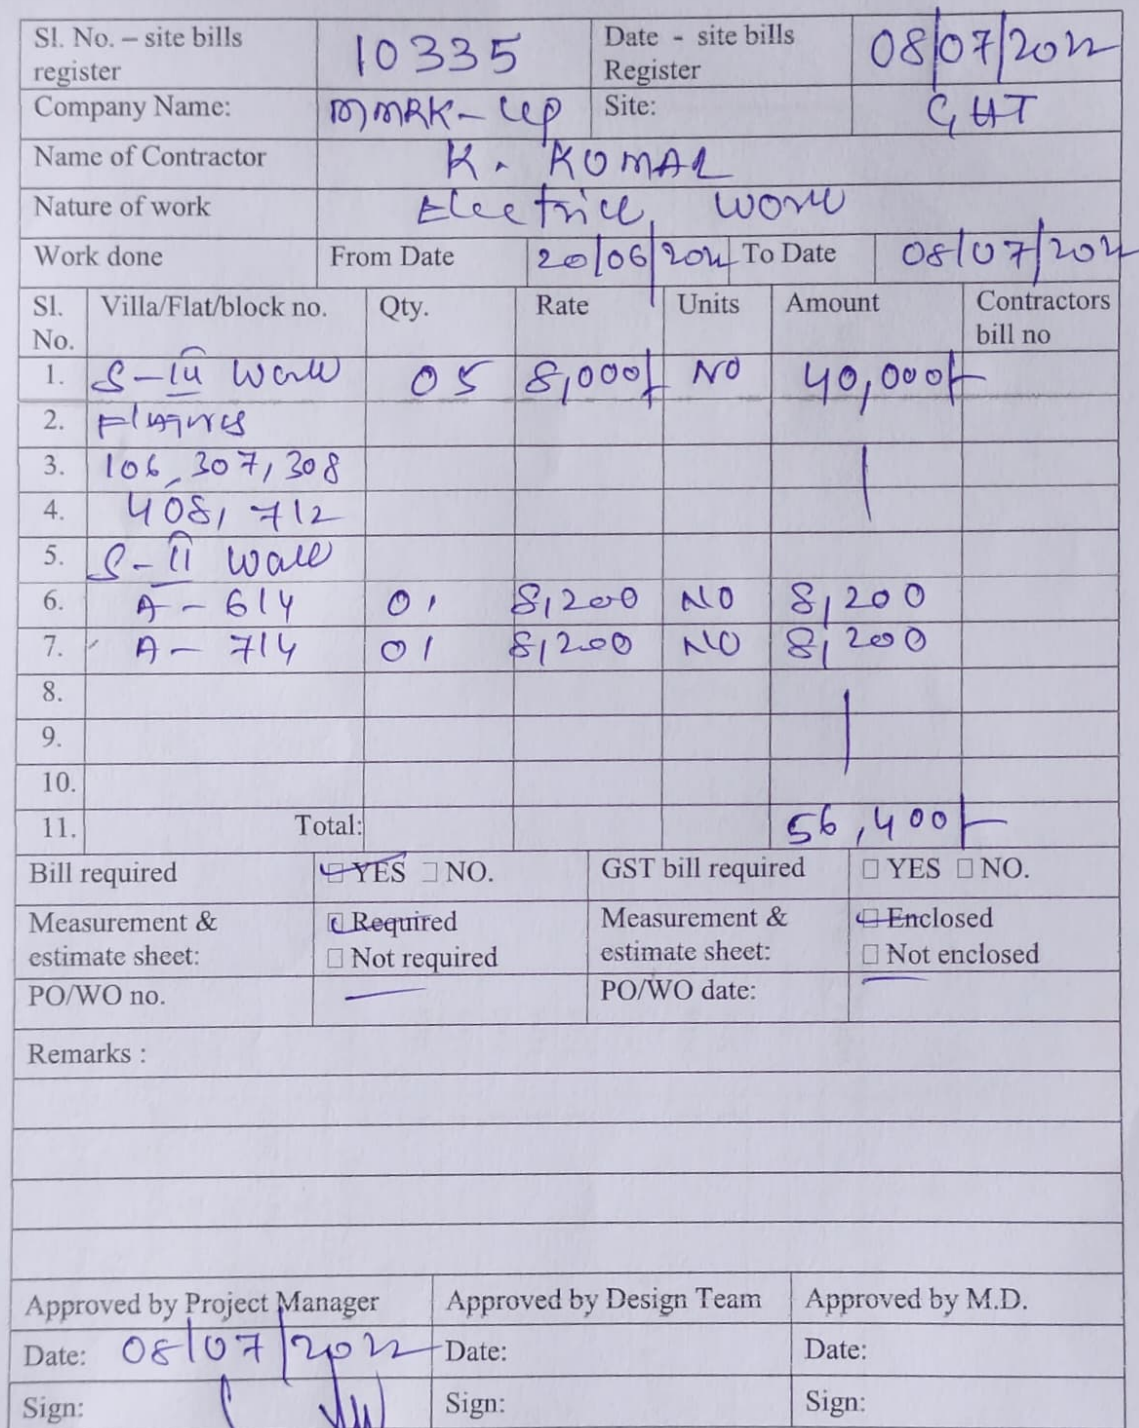 Sl. No. – site bills register 10335 Date - site bills Register 08/07/2022
Company Name: MMRK-LLP Site: GHT
Name of Contractor K. KUMAR
Nature of work Electrice work
Work done From Date 20/06/2022 To Date 08/07/2022
Sl. No. Villa/Flat/block no. Qty. Rate Units Amount Contractors bill no
1. S-III work 05 8,000/- NO 40,000/-
2.
3. 106, 307, 308
4. 408, 712
5. S-II work
6. A - 614 01 8,200 NO 8,200
7. A - 714 01 8,200 NO 8,200
8.
9.
10.
11. Total: 56,400/-
Bill required YES NO. GST bill required YES NO.
Measurement & estimate sheet: Required Not required Measurement & estimate sheet: Enclosed Not enclosed
PO/WO no. — PO/WO date: —
Remarks :
Approved by Project Manager Approved by Design Team Approved by M.D.
Date: 08/07/2022 Date: Date:
Sign: Sign: Sign: